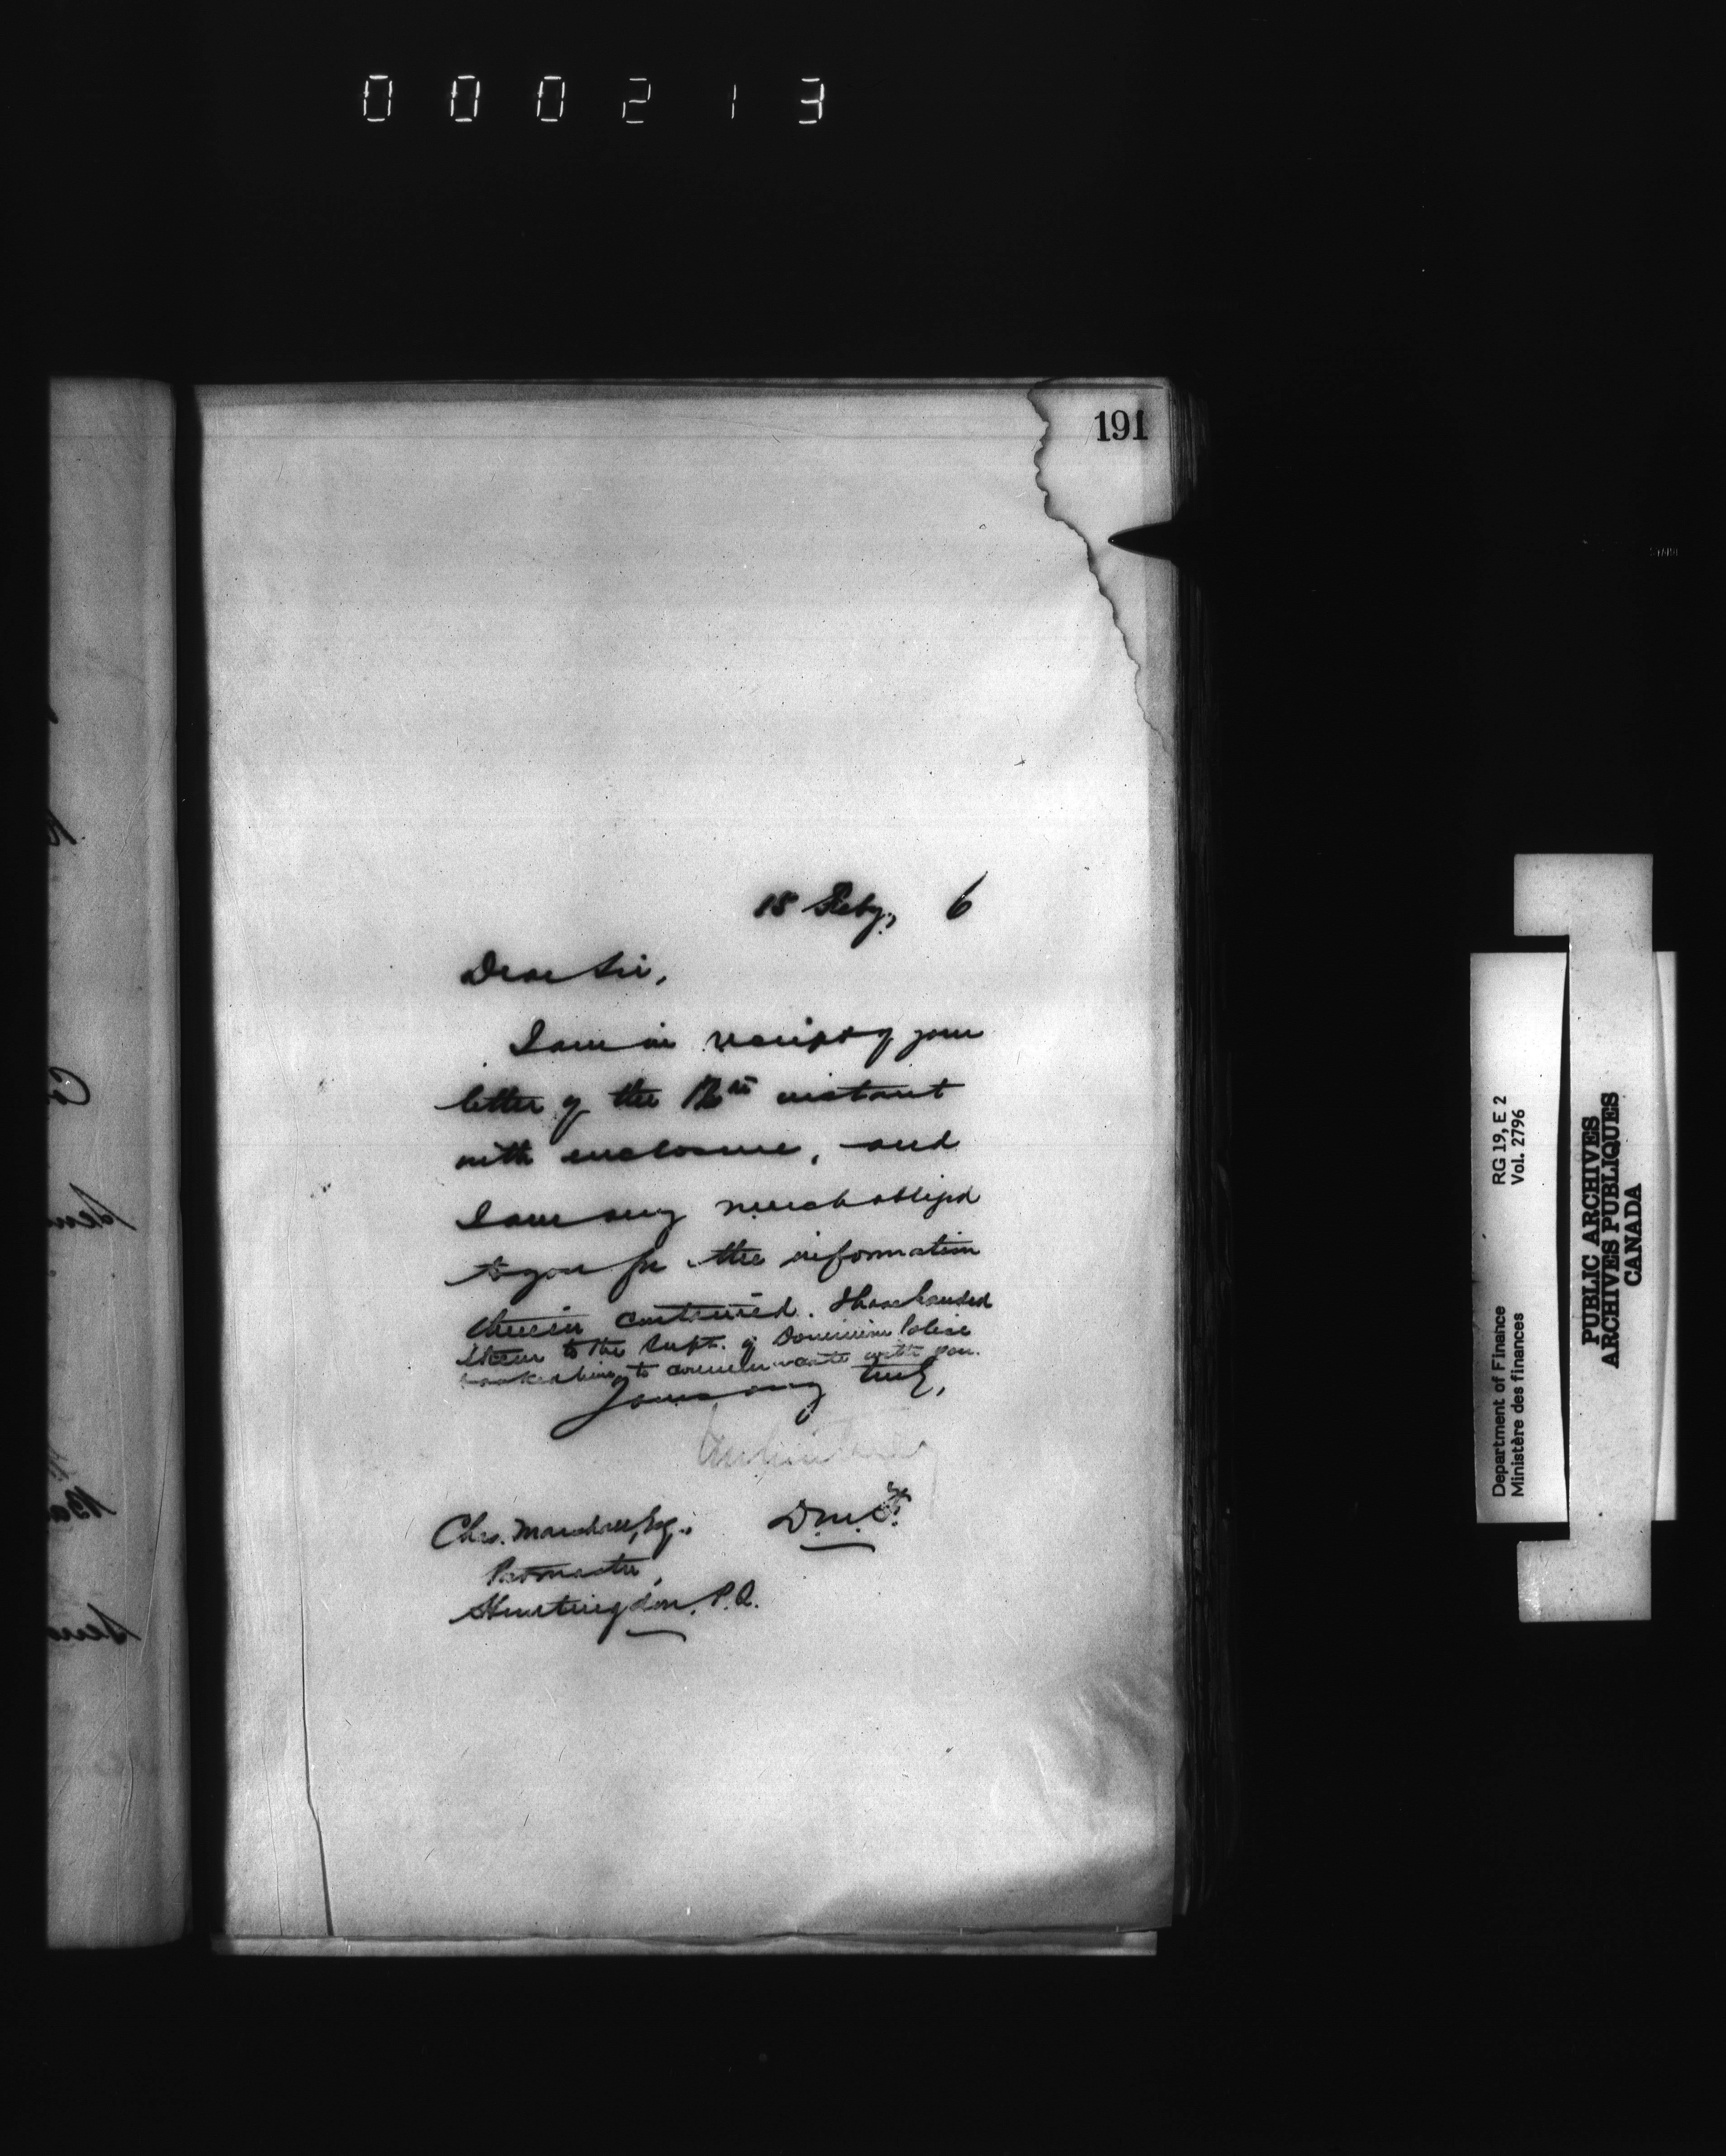 000213
191
15 Feby, 6
Dear Sir,
I am in receipt of your
letter of the 12th instant
with enclosure, and
I am very much obliged
to you for the information
therein contained. I have handed
them to the Supt. of Dominion Police
& asked him to communicate with you.
Yours very truly,
D.M.F.
Chas. Marshall, Esq.,
Postmaster,
Huntingdon, P.Q.
Department of Finance RG 19, E 2
Ministère des finances Vol. 2796
PUBLIC ARCHIVES
ARCHIVES PUBLIQUES
CANADA